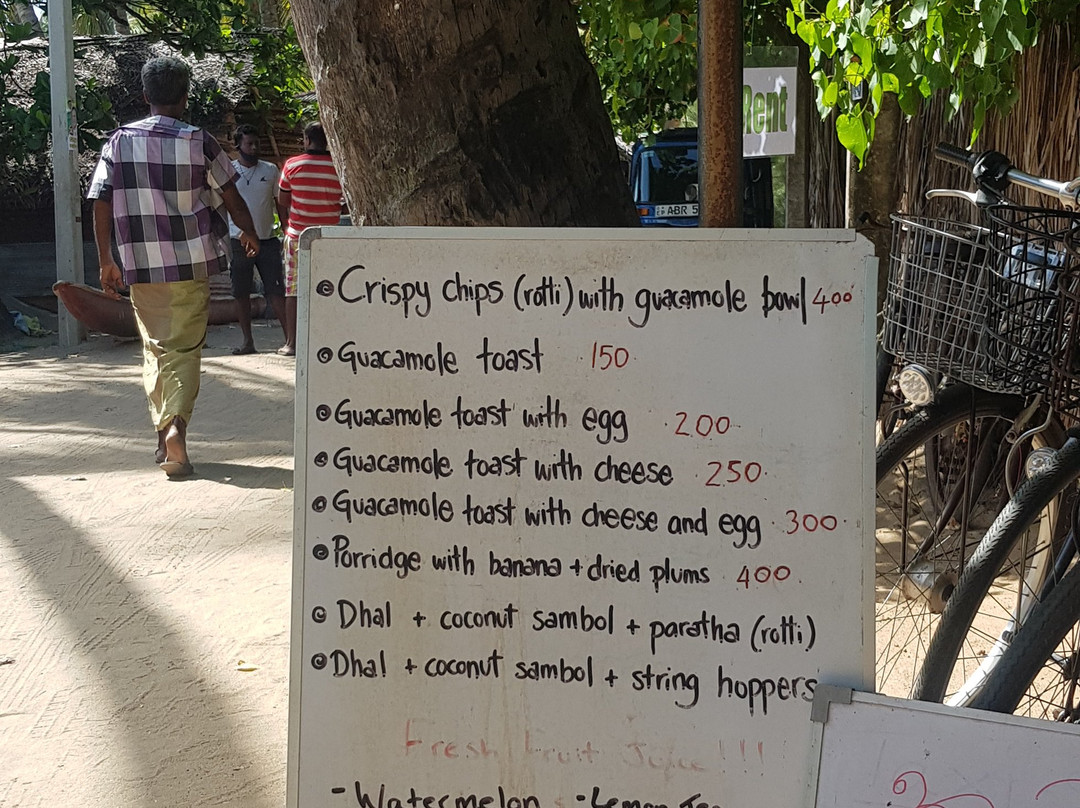 Rent
ABR 5
Crispy chips (rotti) with guacamole bowl 400
Guacamole toast 150
Guacamole toast with egg 200
Guacamole toast with cheese 250
Guacamole toast with cheese and egg 300
Porridge with banana + dried plums 400
Dhal + coconut sambol + paratha (rotti)
Dhal + coconut sambol + string hoppers
Fresh Fruit Juice !!!
- Watermelon - Lemon